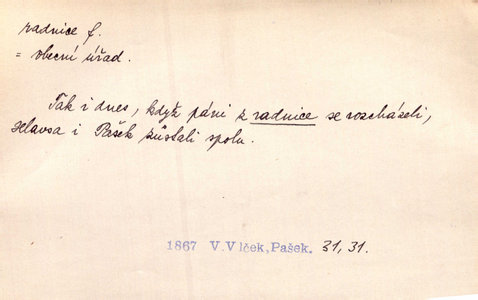 radnice f.
= obecní úřad.
Tak i dnes, když páni z radnice se rozcházeli,
Hlavsa i Pašek zůstali spolu.
1867 V.Vlček,Pašek. 31,31.